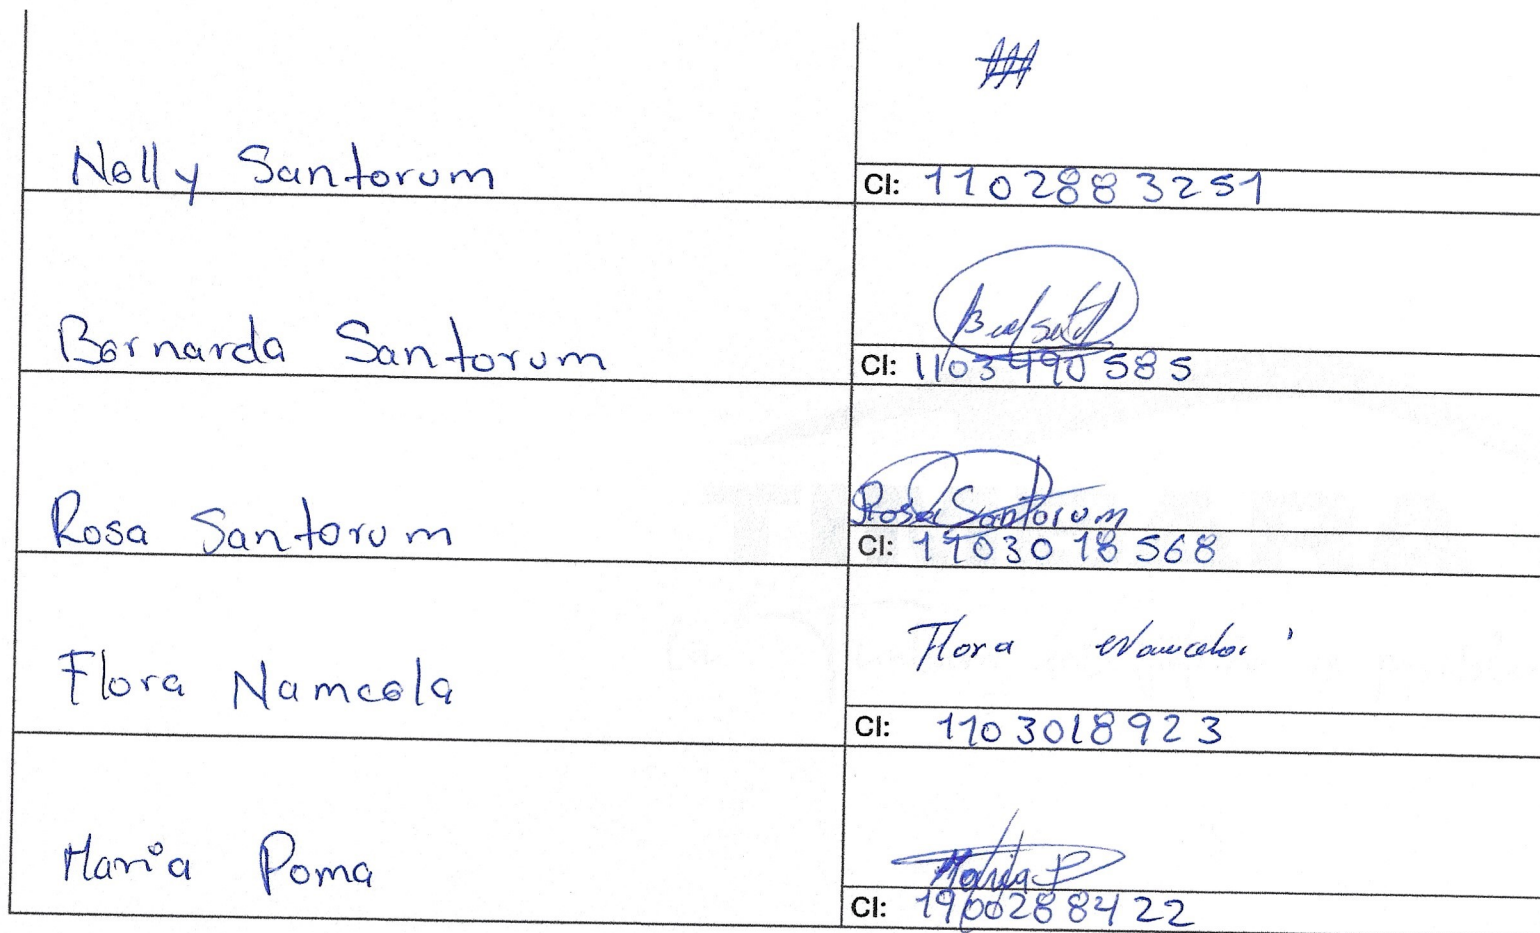 Nelly Santorum
CI: 1102883251
Bernarda Santorum
CI: 1103490585
Rosa Santorum
Rosa Santorum
CI: 1103018568
Flora Namcela
Flora Namcela
CI: 1103018923
Maria Poma
CI: 1900288422